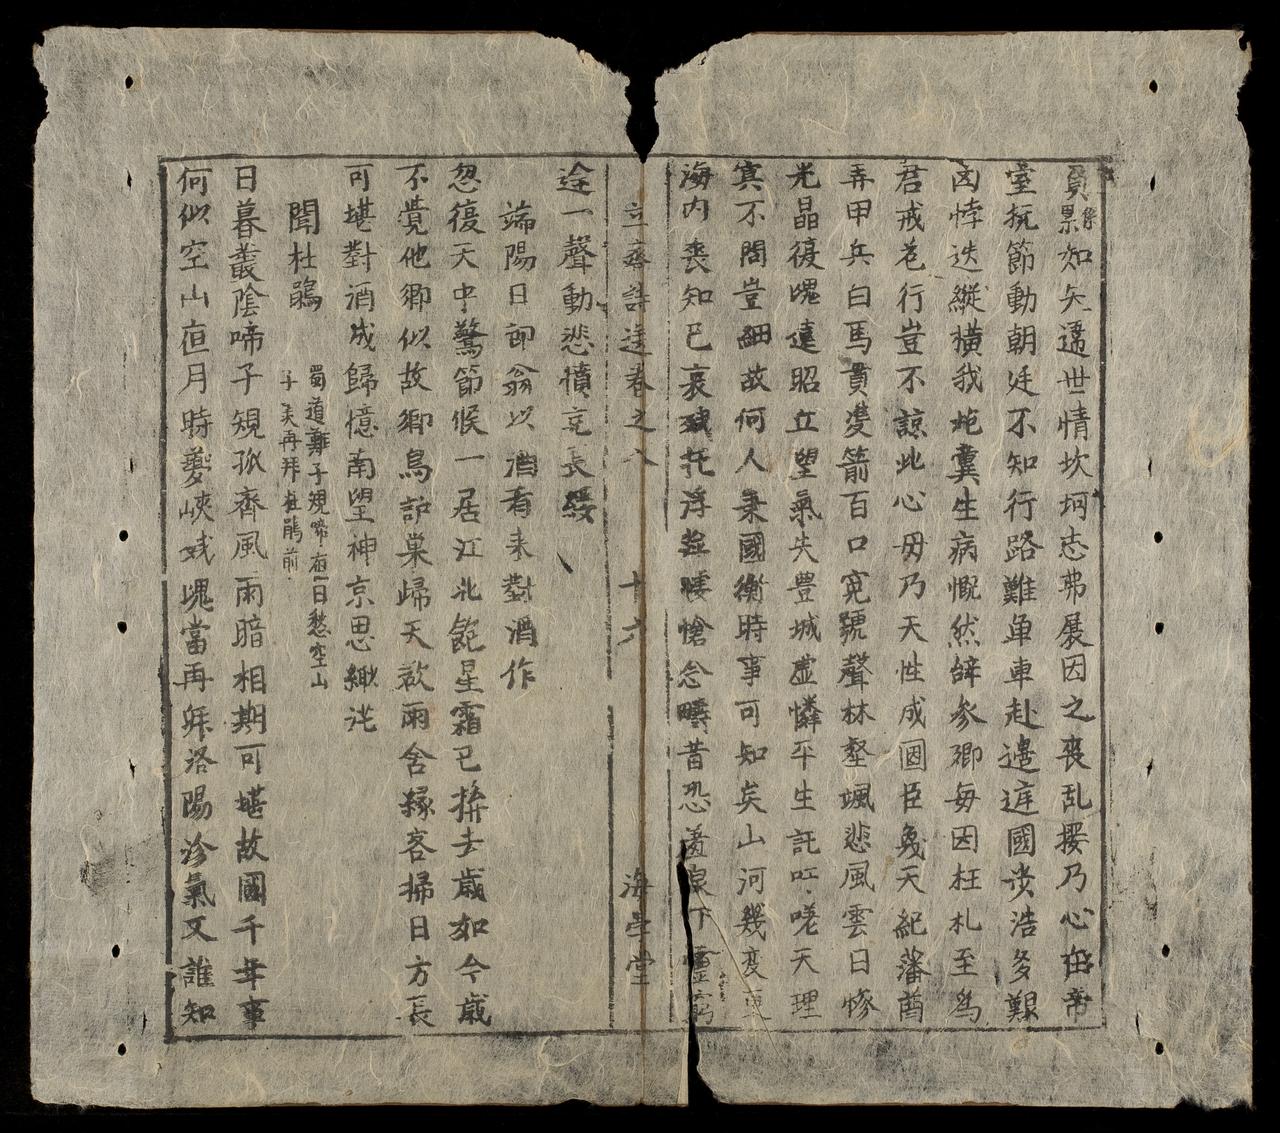 知矢邁世情坎坷志弗展因之喪乱擾乃心在帝
室抚節動朝廷不知行路難単車赴邊庭國步浩多艱
凶悖迭縱橫我疟嚢生病慨然辞参卿每因枉札至為
君戒芒行豈不諒此心毋乃天性成国臣蔑天紀藩酋
弄甲兵白馬貫雙箭百口寃號聲林壑颯悲風雲日惨
光晶復愧違昭立望氣失豊城虚憐平生託吁嗟天理
寘不問豈細故何人秉國衡時事可知矣山河幾变更
海内喪知已哀残托浮悽愴念疇昔恐遺泉下靈窮
立齋詩選卷之八 十六 海學堂
途一聲動悲憤哀長綬
端陽日節翁以酒肴来對酒作
忽復天中驚節候一居江北飽星霜已拚去歲如今歲
不覚他鄉似故鄉鳥訪巢歸天欲雨舍緣客掃日方長
可堪對酒成歸憶南望神京思緲茫
聞杜鵑
蜀道難子規啼夜月愁空山
子美再拜杜鵑前
日暮叢陰啼子規孤齊風雨暗相期可堪故國千年事
何似空山夜月時夔峽残魂當再拜洛陽沴氣又誰知